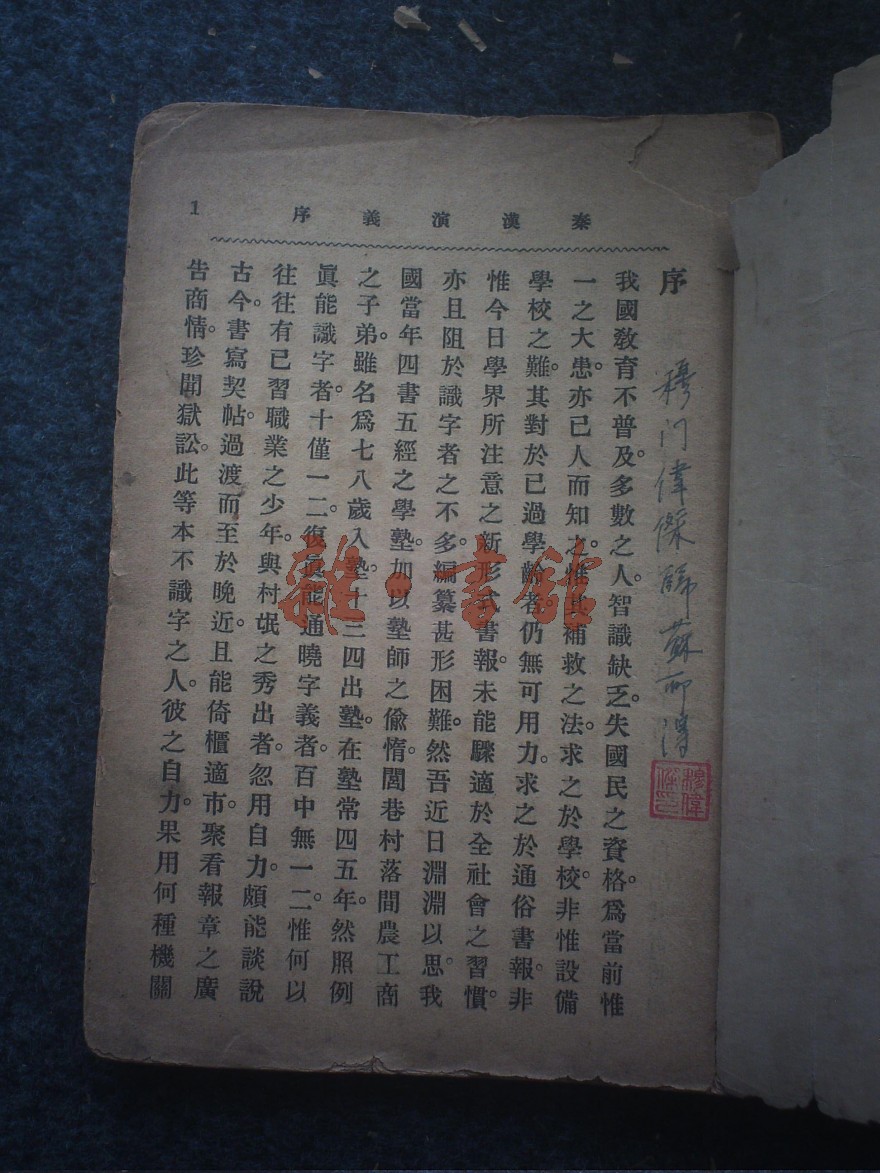 秦漢演義序 1
序
我國教育不普及。多數之人。智識缺乏。失國民之資格。爲當前惟
一之大患。亦已人而知之。惟其補救之法。求之於學校。非惟設備
學校之難。其對於已過學齡者。仍無可用力。求之於通俗書報。非
惟今日學界所注意之新形式書報。未能驟適於全社會之習慣。
亦且阻於識字者之不多。編纂甚形困難。然吾近日淵淵以思。我
國當年四書五經之學塾。加以塾師之偸惰。閭巷村落間農工商
之子弟。雖名爲七八歲入塾。十三四出塾。在塾常四五年。然照例
眞能識字者。十僅一二。復眞能通曉字義者。百中無一二。惟何以
往往有已習職業之少年。與村氓之秀出者。忽用自力。頗能談說
古今。書寫契帖。過渡而至於晚近。且能倚櫃適市。聚看報章之廣
告商情。珍聞獄訟。此等本不識字之人。彼之自力。果用何種機關
雜·書館